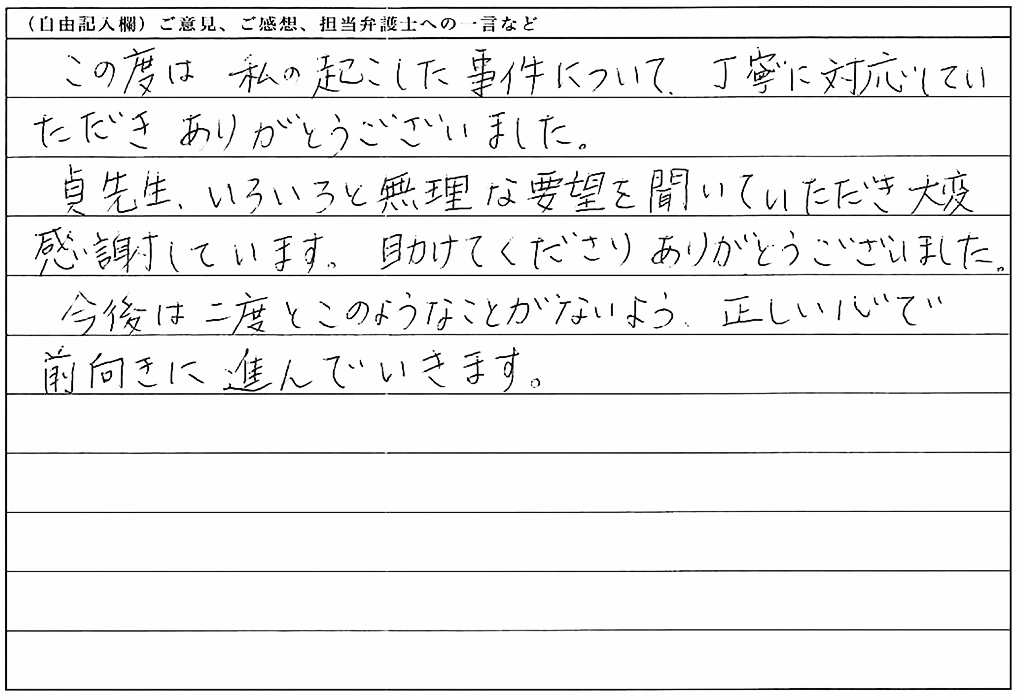 （自由記入欄）ご意見、ご感想、担当弁護士への一言など
この度は 私の起こした事件について、丁寧に対応してい
ただき ありがとうございました。
貞先生、いろいろと無理な要望を聞いていただき大変
感謝しています。助けてくださり ありがとうございました。
今後は二度とこのようなことがないよう、正しい心で
前向きに進んでいきます。